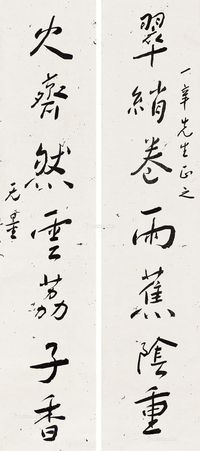 一辛先生正之
翠綃卷雨蕉陰重
火齊然雲荔子香
无量